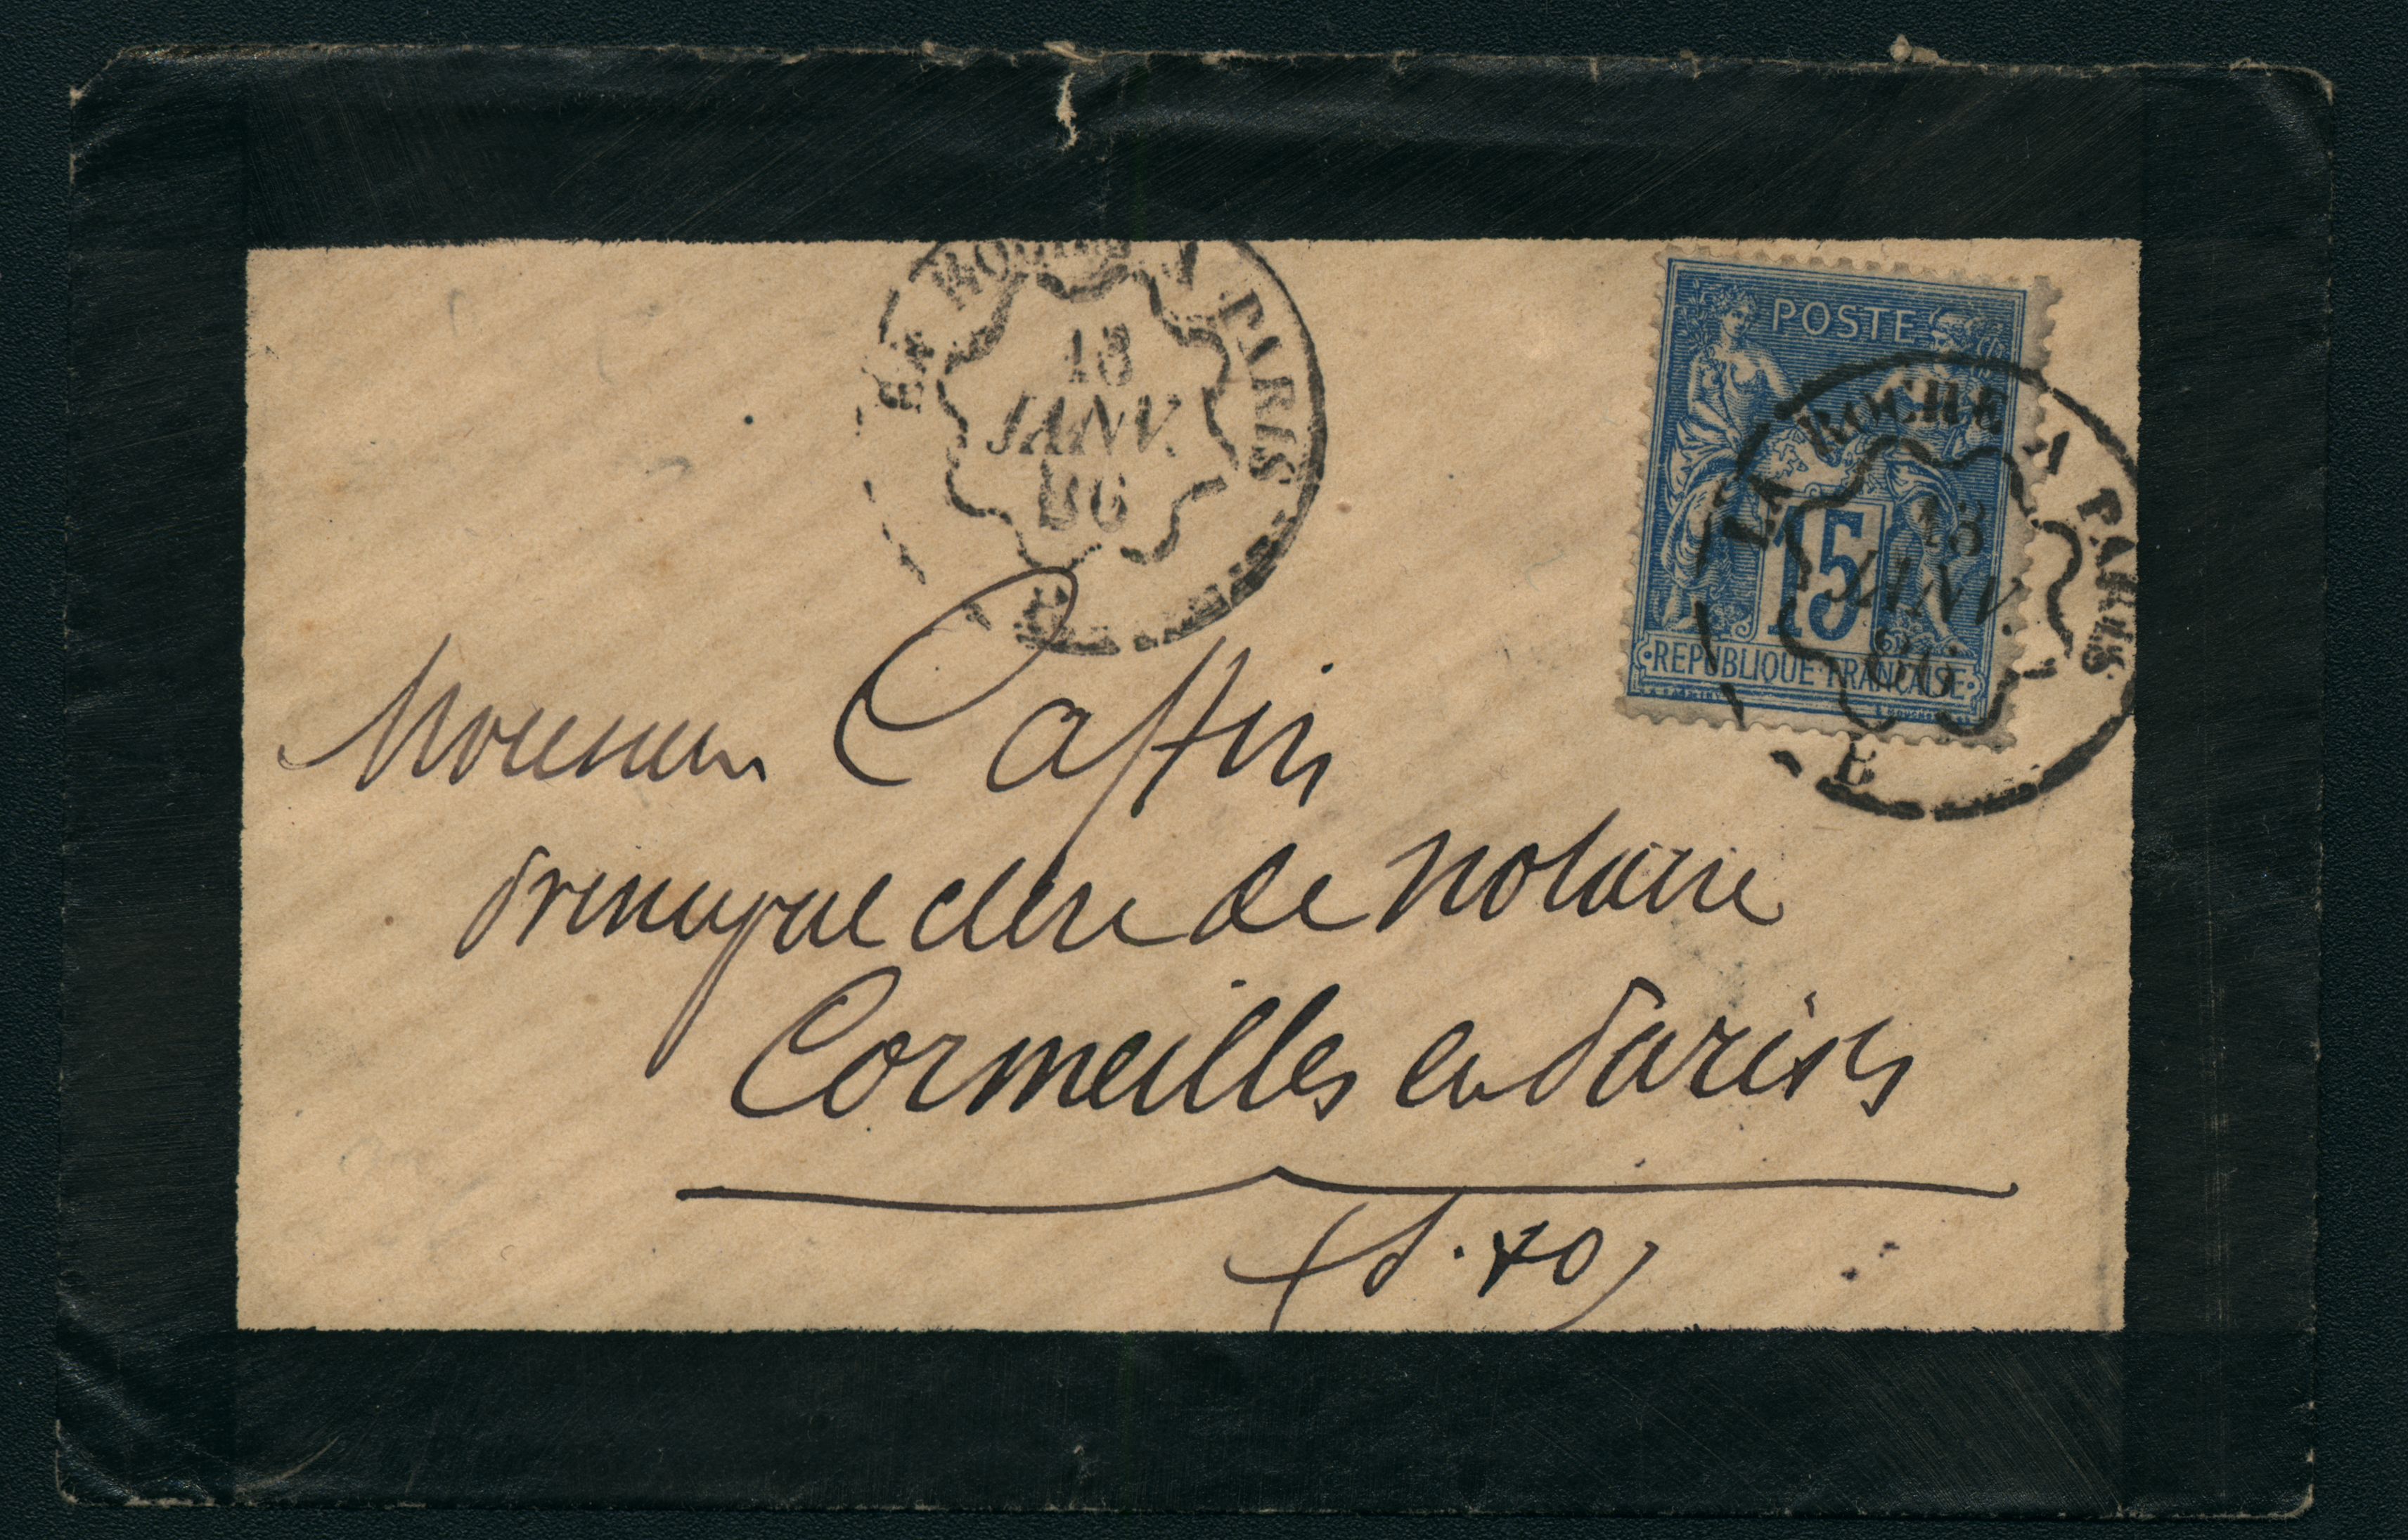 LA ROCHE A PARIS
18
JANV.
86
B
POSTE
15
REPUBLIQUE FRANÇAISE
LA ROCHE A PARIS
18
JANV.
86
B
Monsieur
principal clerc de notaire
Cormeilles en Parisis
(S. &O)